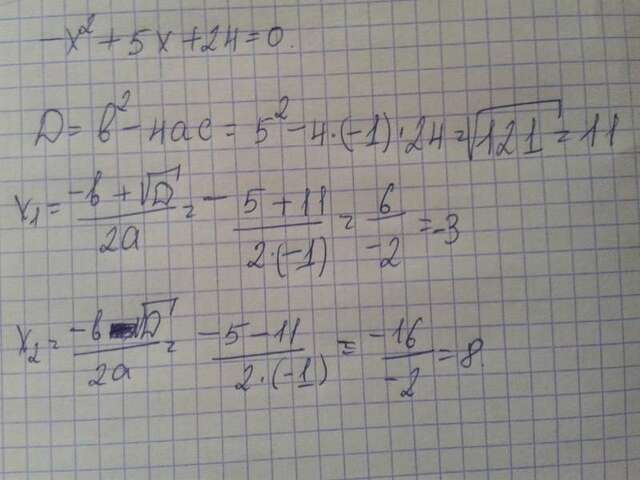 -x² + 5x + 24 = 0.
D = b² - 4ac = 5² - 4·(-1)·24 = √121 = 11
x₁ = (-b + √D)/(2a) = -(5 + 11)/(2·(-1)) = 6/(-2) = -3
x₂ = (-b - √D)/(2a) = (-5 - 11)/(2·(-1)) = (-16)/(-2) = 8.